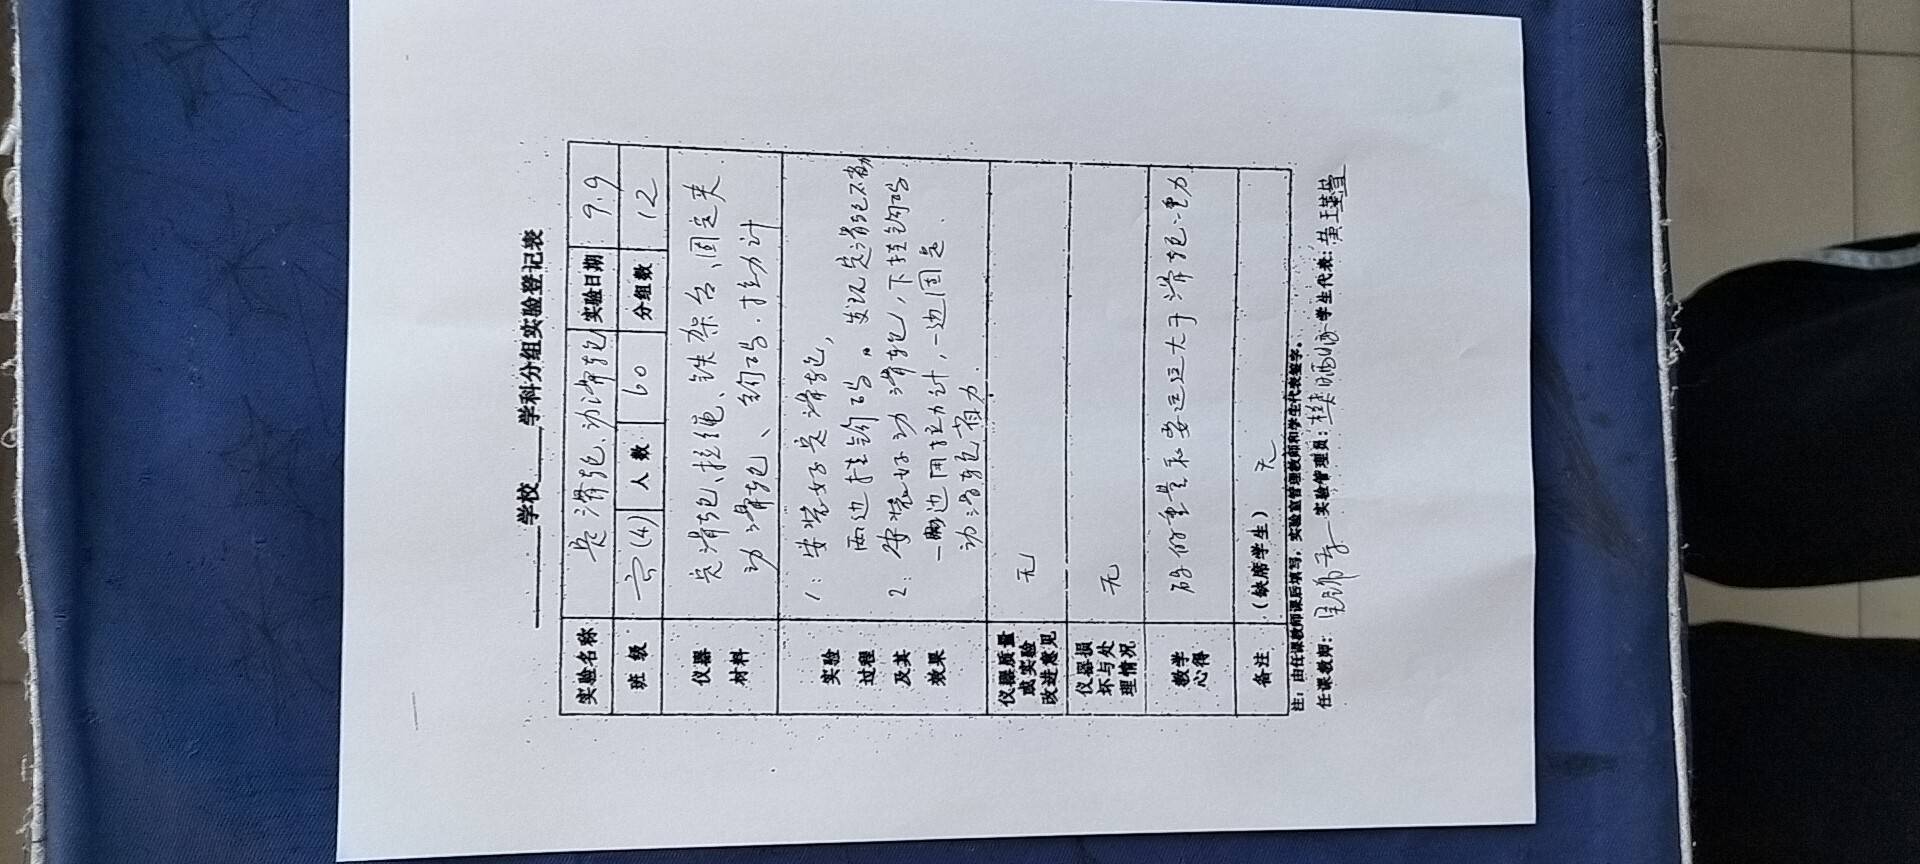 学校 学科分组实验登记表
实验名称 定滑轮、动滑轮 实验日期 9.9
班级 六(4) 人数 60 分组数 12
仪器材料 定滑轮、拉绳、铁架台、固定夹
动滑轮、钩码、拉力计
实验过程及其效果 1：安装好定滑轮，
两边挂钩码。发现定滑轮不省力
2：安装好动滑轮，下挂钩码
一边用拉力计，一边固定、
动滑轮省力．
仪器质量或实验改进意见 无
仪器损坏与处理情况 无
教学心得 码的重量永要远远大于滑轮重力
备注 （缺席学生） 无
注：由任课教师课后填写，实验室管理教师和学生代表签字。
任课教师： 实验管理员： 学生代表：黄